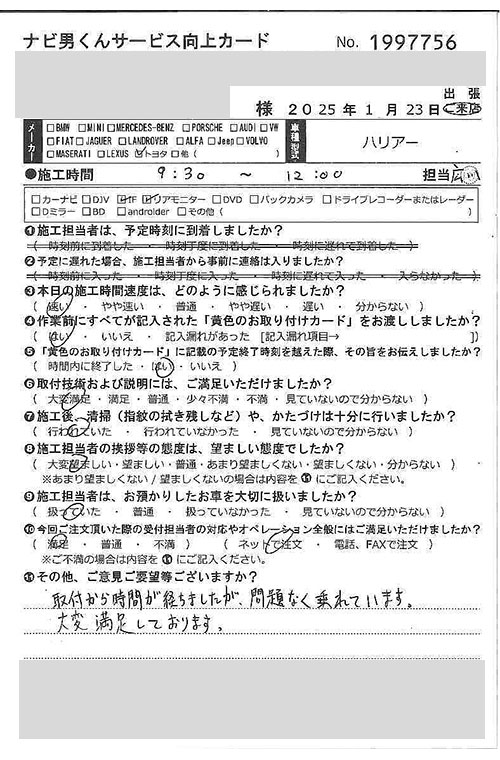 ナビ男くんサービス向上カード No. 1997756
様 2025年1月23日 出張 ご来店
メーカー □BMW □MINI □MERCEDES-BENZ □PORSCHE □AUDI □VW
□FIAT □JAGUER □LANDROVER □ALFA □Jeep □VOLVO
□MASERATI □LEXUS ☑トヨタ □他( ) 車種型式 ハリアー
●施工時間 9:30 ～ 12:00 担当 広
□カーナビ □DJV ☑IF ☑リアモニター □DVD □バックカメラ □ドライブレコーダーまたはレーダー
□Dミラー □BD □androider □その他( )
❶施工担当者は、予定時刻に到着しましたか?
( 時刻前に到着した ・ 時刻丁度に到着した ・ 時刻に遅れて到着した )
❷予定に遅れた場合、施工担当者から事前に連絡は入りましたか?
( 時刻前に入った ・ 時刻丁度に入った ・ 時刻に遅れて入った ・ 入らなかった )
❸本日の施工時間速度は、どのように感じられましたか?
( 速い ・ やや速い ・ 普通 ・ やや遅い ・ 遅い ・ 分からない )
❹作業前にすべてが記入された「黄色のお取り付けカード」をお渡ししましたか?
( はい ・ いいえ ・ 記入漏れがあった [記入漏れ項目→ ])
❺「黄色のお取り付けカード」に記載の予定終了時刻を越えた際、その旨をお伝えしましたか?
( 時間内に終了した ・ はい ・ いいえ )
❻取付技術および説明には、ご満足いただけましたか?
( 大変満足 ・ 満足 ・ 普通 ・ 少々不満 ・ 不満 ・ 見ていないので分からない )
❼施工後、清掃（指紋の拭き残しなど）や、かたづけは十分に行いましたか?
( 行われていた ・ 行われていなかった ・ 見ていないので分からない )
❽施工担当者の挨拶等の態度は、望ましい態度でしたか?
( 大変望ましい ・ 望ましい ・ 普通 ・ あまり望ましくない ・ 望ましくない ・ 分からない )
※あまり望ましくない / 望ましくないの場合は内容を ⓫ にご記入ください。
❾施工担当者は、お預かりしたお車を大切に扱いましたか?
( 扱っていた ・ 普通 ・ 扱っていなかった ・ 見ていないので分からない )
❿今回ご注文頂いた際の受付担当者の対応やオペレーション全般にはご満足いただけましたか?
( 満足 ・ 普通 ・ 不満 ) ( ネットで注文 ・ 電話、FAXで注文 )
※ご不満の場合は内容を ⓫ にご記入ください。
⓫その他、ご意見ご要望等ございますか?
取付から時間が経ちましたが、問題なく乗れています。
大変満足しております。